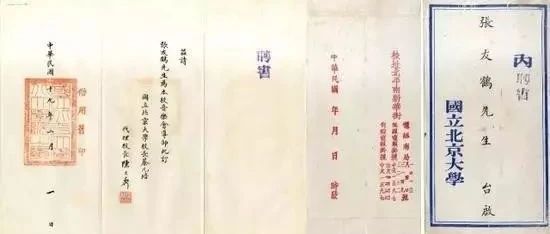 內聘書
張友鶴先生 台啟
國立北京大學
校址北平南新華街
中華民國 年 月 日
聘書
茲請
張友鶴先生為本校音樂會導師此訂
國立北京大學校長蔡元培
代理校長陳大齊
借用舊印
中華民國十九年 月一日